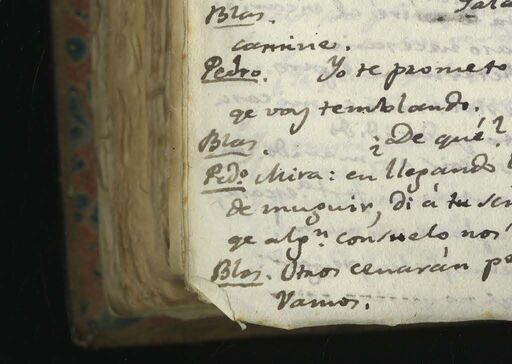 Blas.
camine.
Pedro. Yo te prometo
qe voy temblando.
Blas. ¿De qué?
Pedo. Mira: en llegando
de muguir, di á tu
qe algn. consuelo nos
Blas. Otros cenarán
Vamos.